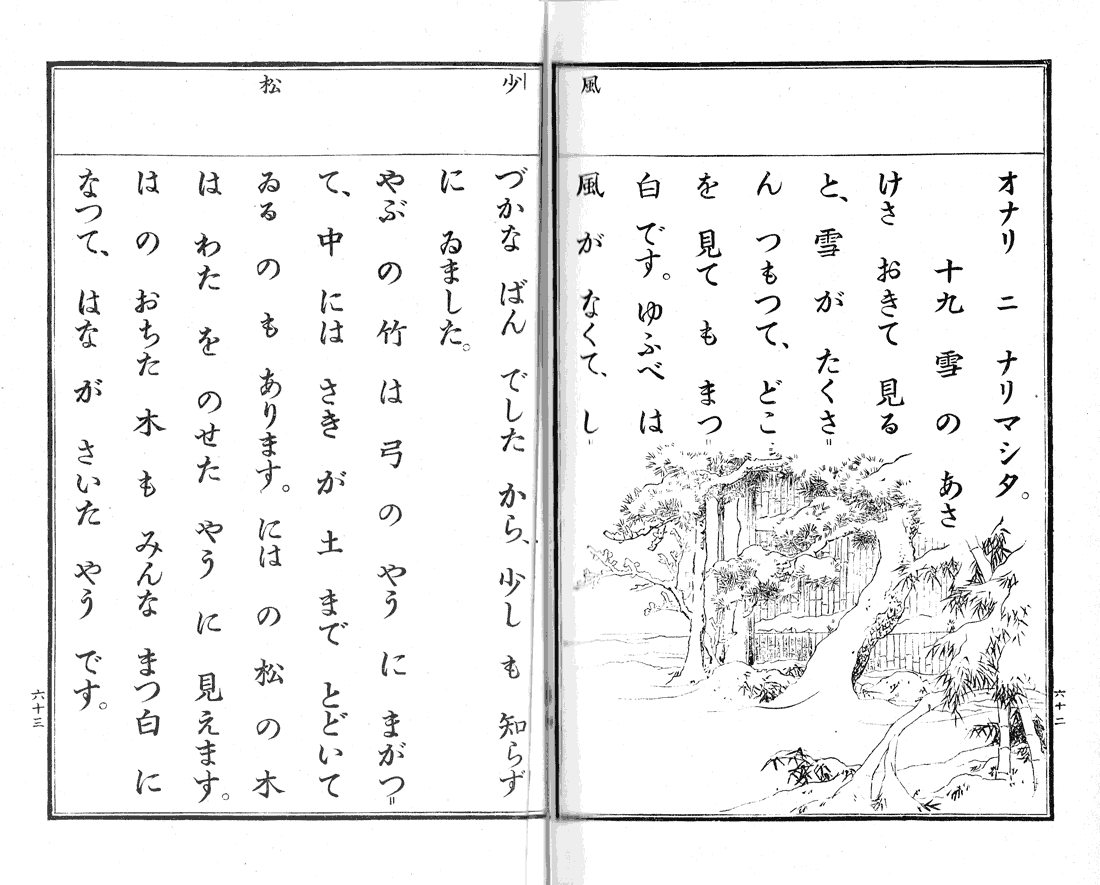 風
オナリ ニ ナリマシタ。
十九 雪 の あさ
けさ おきて 見る
と、雪 が たくさ=
ん つもつて、どこ
を 見て も まつ=
白 です。ゆふべ は
風 が なくて、し=
六十二
少
松
づかな ばん でした から、少し も 知らず
に ゐました。
やぶ の 竹 は 弓 の やう に まがつ=
て、中 には さき が 土 まで とどいて
ゐる の も あります。には の 松 の 木
は わた を のせた やう に 見えます。
は の おちた 木 も みんな まつ白 に
なつて、はな が さいた やう です。
六十三